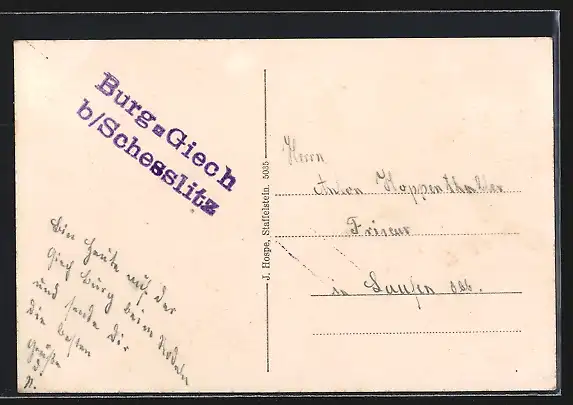 Burg=Giech
b/Schesslitz
Bin heute auf der
Giech Burg beim Rodeln
und sende Dir
die besten
Grüße
J. Hospe, Staffelstein. 5035
Herrn
Anton Hoppenthaller
Friseur
in Laufen Obb.